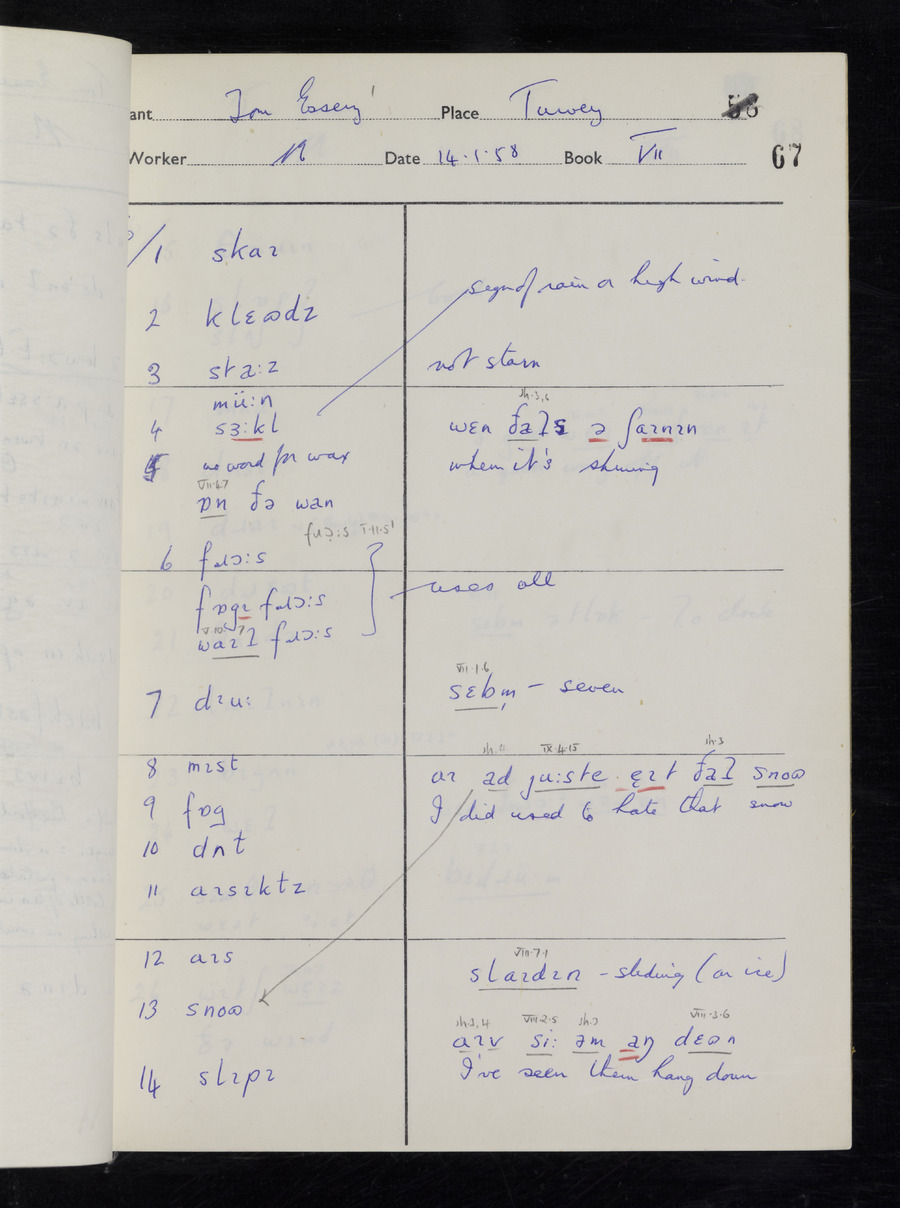 ant Tom Essery Place Turvey
Worker N Date 14.1.58 Book VII 67
/1 skaɪ
sign of rain or high wind.
2 klɛʊdz
3 staːz not starn
müːn
4 sɜːkl wɛn ðaʔs ə ʃaɪnɪn
sh.3,6
5 no word for wax when it's shining
VII.4.7
ɒn ðə wan
fɹɔːs I.11.5
6 fɹɔːs
uses all
fɒgɪ fɹɔːs
V.10.7
waɪʔ fɹɔːs
VII.1.6
7 dɪuː sɛbm̩ – seven
sh.4 IX.4.15 sh.3
8 mɪst aɪ ad juːstə ɛɪt ðaʔ snoʊ
9 fɒg I did used to hate that snow
10 dɹʌt
11 aɪsɪktz
12 aɪs
VIII.7.1
slaɪdɪn – sliding (on ice)
13 snoʊ
sh.3,4 VIII.2.5 sh.3 VIII.3.6
aɪv siː əm aŋ dɛʊn
14 slɪpɪ I've seen them hang down